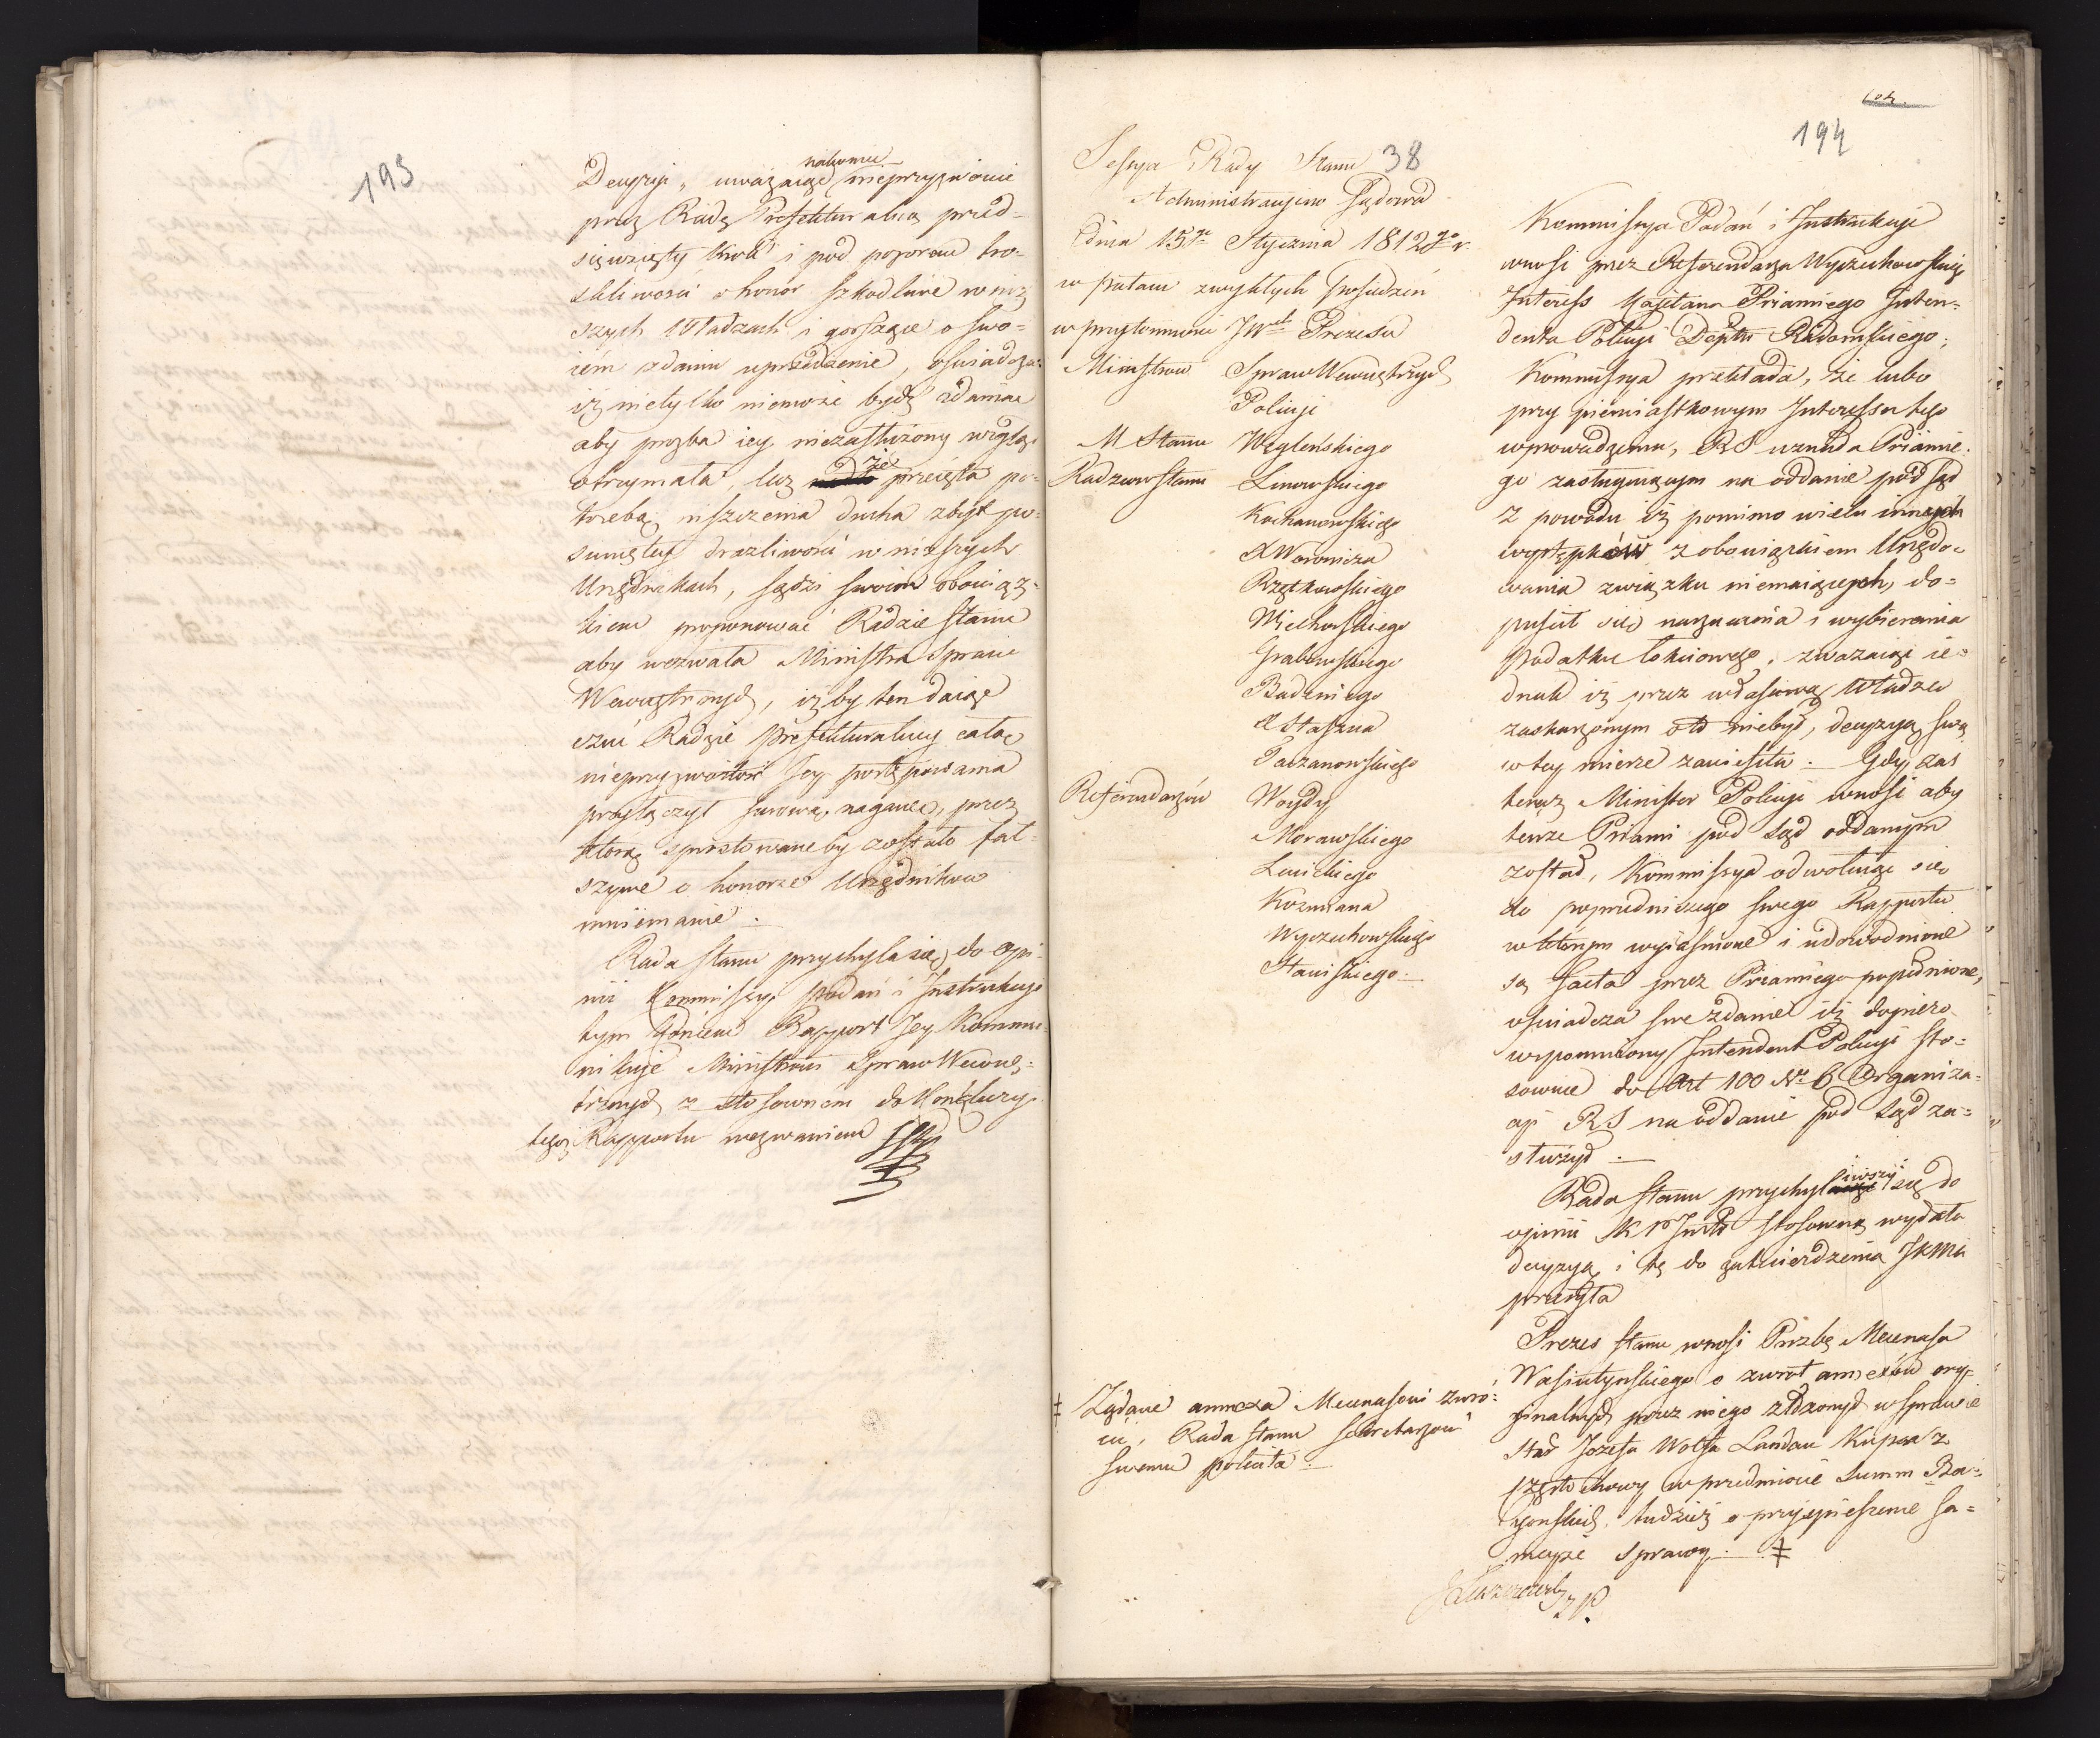 193
nakoniec
Decyzyi, uważaiąc nieprzyzwoicie
przez Radę Prefekturalną przed-
sięwzięty krok i pod pozorem tro-
skliwości o honor szkodliwe w niż-
szych Władzach i gorszące o swo-
iém zdaniu uprzedzenie, oświadcza:
iż nietylko niemoże bydź zdania
aby prozba iey niezasłużony wzgląd
otrzymała, lecz że przeięta po-
trzebą niszczenia ducha zbyt po-
suniętey drażliwości w niższych
Urzędnikach, sądzi swoim obowiąz-
kiem proponować Radzie Stanu
aby wezwała Ministra Spraw
Wewnętrznych, iżby ten daiąc
czuć Radzie Prefekturalney całą
nieprzyzwoitość Jey postępowania
przyłączył surową naganę, przez
którą sprostowane by zostało fał-
szywe o honorze Urzędników
mniemanie.
Rada Stanu przychyla się do opi-
nii Kommissyi Podań i Instrukcyi
tym końcem Rapport Jey Kommu-
nikuje Ministrowi Spraw Wewnę-
trznych z stosowném do Konkluzyi
tegoż Rapportu wezwaniem
194
Sessya Rady Stanu 38
Administracyino Sądowa
Dnia 15go Stycznia 1812go r.
w pałacu zwykłych posiedzeń
w przytomności JWch Prezesa
Ministrów Spraw Wewnętrznych
Policyi
M Stanu Węgleńskiego
Radzców Stanu Linowskiego
Kochanowskiego
X Woronicza
Rzętkowskiego
Wielhorskiego
Grabowskiego
Badeniego
X Staszica
Taczanowskiego
Referendarzów Woydy
Morawskiego
Łanickiego
Kozmiana
Wyczechowskiego
Staniskiego
Kommissya Podań i Instrukcyi
wnosi przez Referendarza Wyczechowskiego
Interess Kajetana Priamiego Inten-
denta Policyi Deptu Radomskiego;
Kommissya przekłada, że lubo
przy pierwiastkowym Interessu tego
wprowadzeniu, RS uznała Priamie-
go zasługuiącym na oddanie pod sąd
z powodu iż pomimo wielu innych
występków z obowiązkiem Urzędo-
wania związku niemaiących, do-
puścił się naznaczenia i wybierania
podatku łokciowego, zważaiąc ie-
dnak iż przez właściwą Władzę
zaskarżonym nie był, decyzyą swą
w tey mierze zawiesiła. Gdy zaś
teraz Minister Policyi wnosi aby
tenże Priami pod sąd oddanym
został, Kommissya odwołuiąc się
do poprzedniczego swego Rapportu
w którym wyiaśnione i udowodnione
są facta przez Priamiego popełnione,
oświadcza swe zdanie iż dopiero
wspomniony Intendent Policyi sto-
sownie do Art 100 No 6 Organiza-
cyi RS na oddanie pod Sąd za-
służył.
Rada Stanu przychyliwszy się do
opinii K P Instr stosowną wydała
decyzyą i tę do zatwierdzenia JKMci
przesyła
Prezes Stanu wnosi Prozbę Mecenasa
Wasiutyńskiego o zwrot annexów ory-
ginalnych przez niego złożonych w sprawie
Star Jozefa Wolfa Landau Kupca z
Częstochowy w przedmiocie Summ Ba-
yonskich, tudzież o przyspieszenie sa-
meyże sprawy. ‡
‡ Żądane annexa Mecenasowi zwró-
cić, Rada Stanu Sekretarzowi
swemu poleciła.